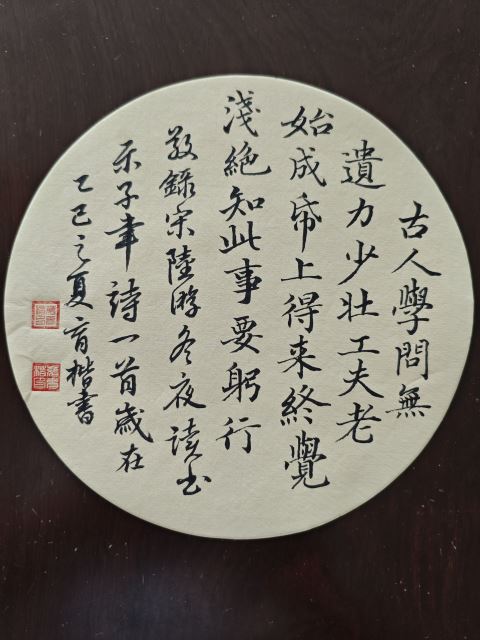 古人學問無
遺力少壯工夫老
始成帋上得来終覺
淺絕知此事要躬行
敬錄宋陸游冬夜读书
示子聿詩一首歲在
乙巳之夏育楷書